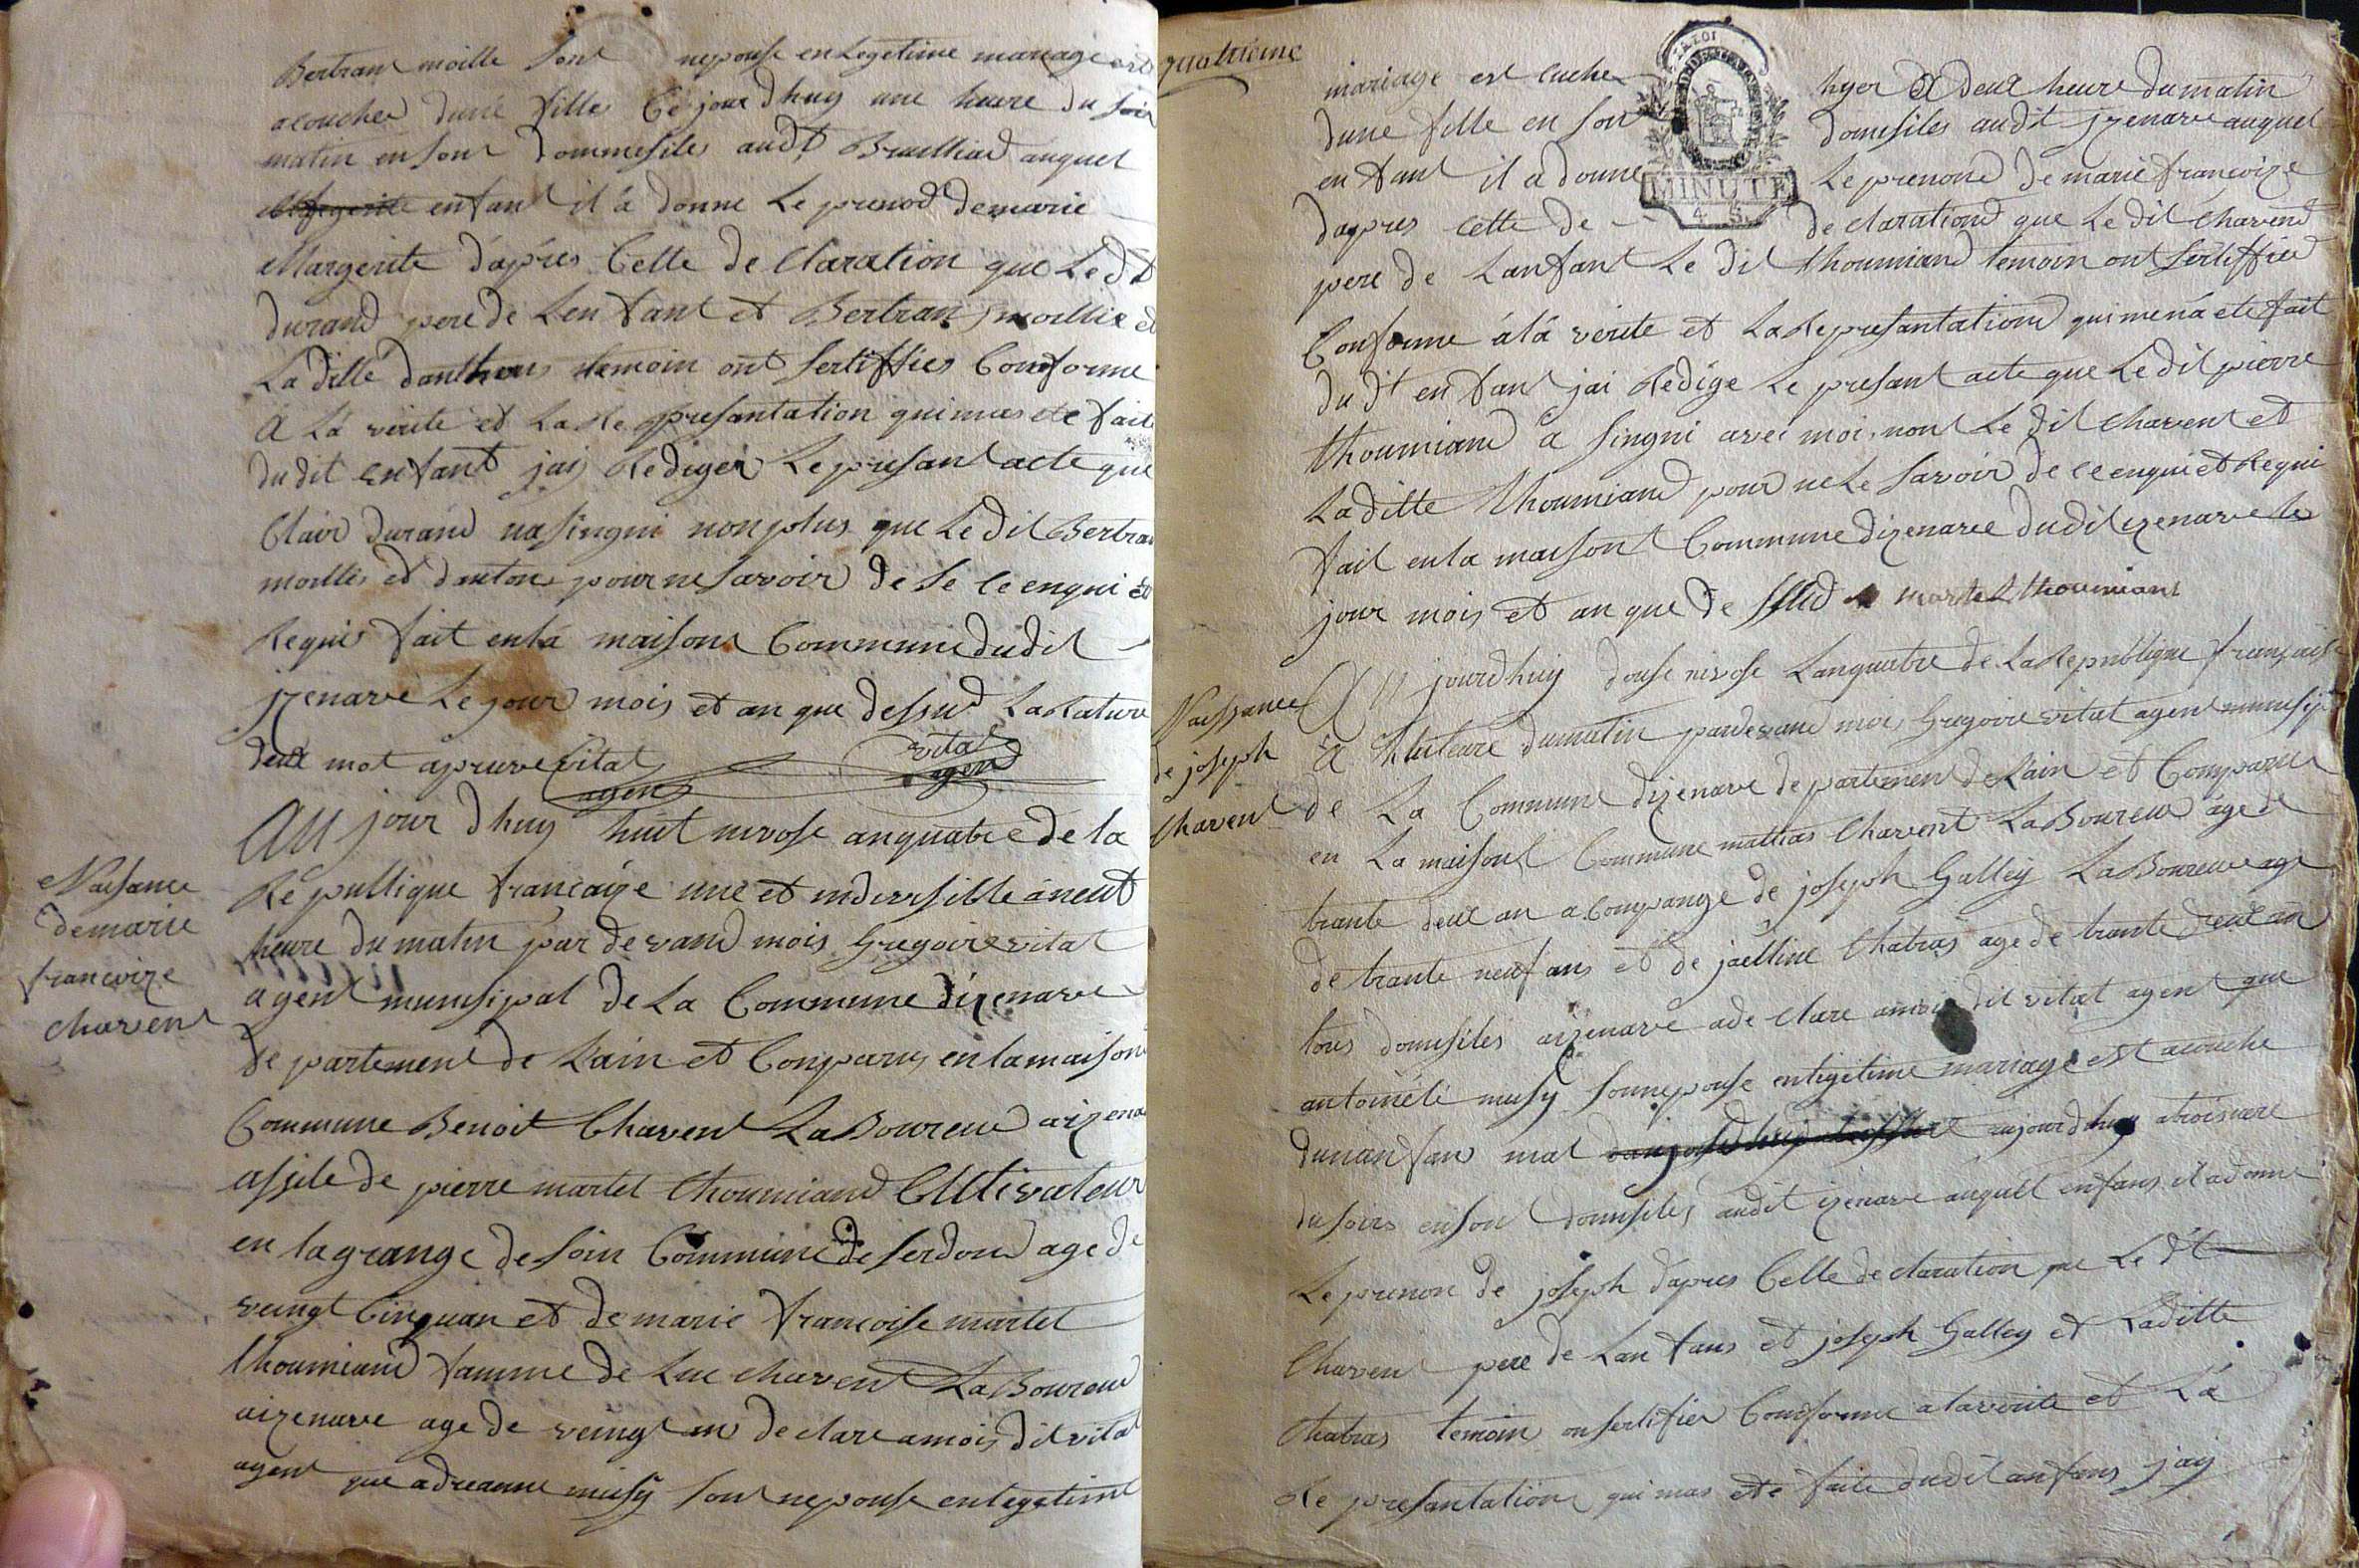 Bertrant moille sont nepouse en Legetime mariage est
acouchée dune fille Ce jour dhuy une heure du soir
matin en sont dommesile audt Bruilliad auquel
enfant il á donne Le prenod de marie
Margerite dápres Cette de Claration que Le dt
durand pere de Lenfant et Bertran moillie et
La ditte danthons temoin ont sertiffies Conforme
A La verite et La Re presantation qui mas ete fait
du dit enfant jais Rediger Le presant acte que
Clair durand na singni non plus que Le dit Bertran
moillie et danton pour ne savoir de se ce enqui et
Requis fait en la maisont Commune du dit
jzenave Le jour mois et an que dessud La Rature
deux mot apreuve vital agent
vital agend
Naisance
de marie
francoize
chavent
AU jour dhuy huit nivose an quatre de la
Republlique francaize une et indivisible á neuf
heure du matin par devand mois Gregoire vital
agent munisipal de La Commune dizenave
de partement de Lain et Comparus en la maisont
Commune Benoit Chavent La Boureur aizena
assite de pierre martel thoumiand Cultivateur
en la grange de soin Commune de serdond age de
veingt Cinq uan et de marie francoise martel
thoumiand famme de Luc chavent La Boureur
aizenave age de veingt an declare a mois dit vital
agent que adreanne musy sont nepouse en legetime
quatrieme
mariage est cuche hyer A deux heure du matin
dune fille en son domesiles audit jzenave auquel
enfant il a donne Le prenond de marie francoize
dapres cette de - de claration que Le dit Chavend
pere de Lanfant Le dit thoumiand temoin ont sertiffied
Conforme á lá verite et La Represantation qui mená ete fait
du dt enfant jai Redige Le presant acte que Le dit pierre
thoumiand á singni avec moi, nont Le dit Chavent et
La ditte thoumiand pour ne Le savoir de ce enqui et Requi
fait en la maisont Commune dizenave du dit izenave le
jour mois et an que de ssud martel thoumiant
MINUTE
4. S.
Naissance
de joseph
Chavent
AU jourdhuy douse nivose Lanquatre de La Republique française
A huteure du matin pardevand moi Gregoire vital agent munusip
de La Commune dizenave de partement de Lain et Comparu
en La maisont Commune mattias Chavent La Boureur âge de
trante deux an acompange de joseph Galley La Boureur age
de trante neuf ans et de jaelline Chatras age de trante deux an
tous domesiles aizenave a de Clare a mois dit vital agent que
antoinete musy sonnepouse enligitime mariage est acouche
dunanfan mal aujourdhuy a trois ure
du soirs en son domesiles audit izenave auquel enfans il a donne
Le prenon de joseph dapres Cette declaration que Le dt
Chavent pere de Lanfans et joseph Galley et Laditte
Chatras temoin on sertifier Conforme a la verite et Lá
Re presantation qui mas ete faite du dit anfans jay